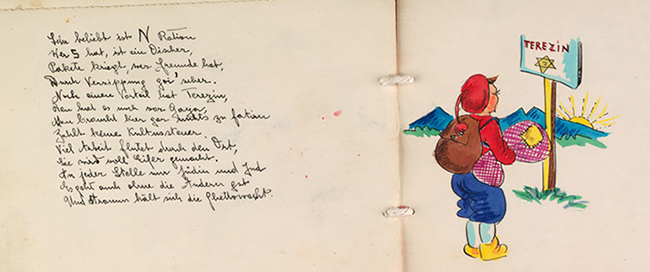 Sehr beliebt ist N Ration
Wer S hat, ist ein
Pakete kriegt, wer Freunde hat,
Noch einen Vorteil hat Terezin
hat es
Man braucht hier gar nichts zu
Zahlt keine Kultussteuer.
Viel Arbeit flutet durch den Ort,
Sie wird voll Eifer gemacht.
An jeder Stelle nur Jüdin und Jud
Es geht auch ohne die Andern gut
Und stramm hält sich die Ghettowacht.
TEREZIN